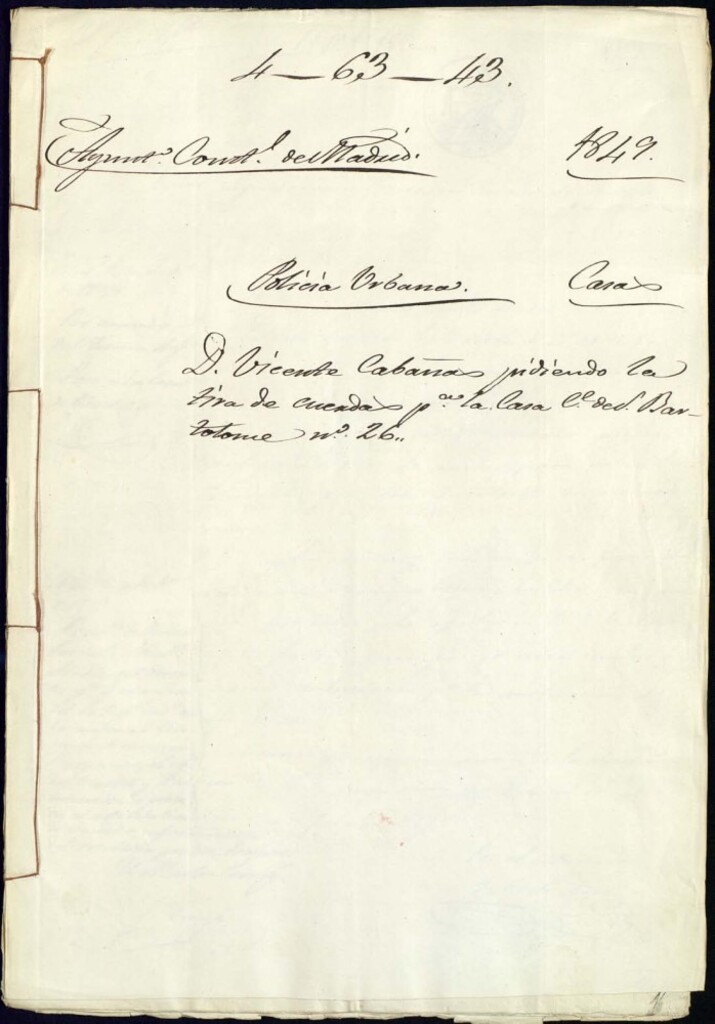 4 — 63 — 43.
Ayunt.º Const.l de Madrid. 1849.
Policia Urbana. Casas
D. Vicente Cabañas pidiendo la
tira de cuerdas p.a la Casa C.e de S. Bar-
tolome n.º 26..